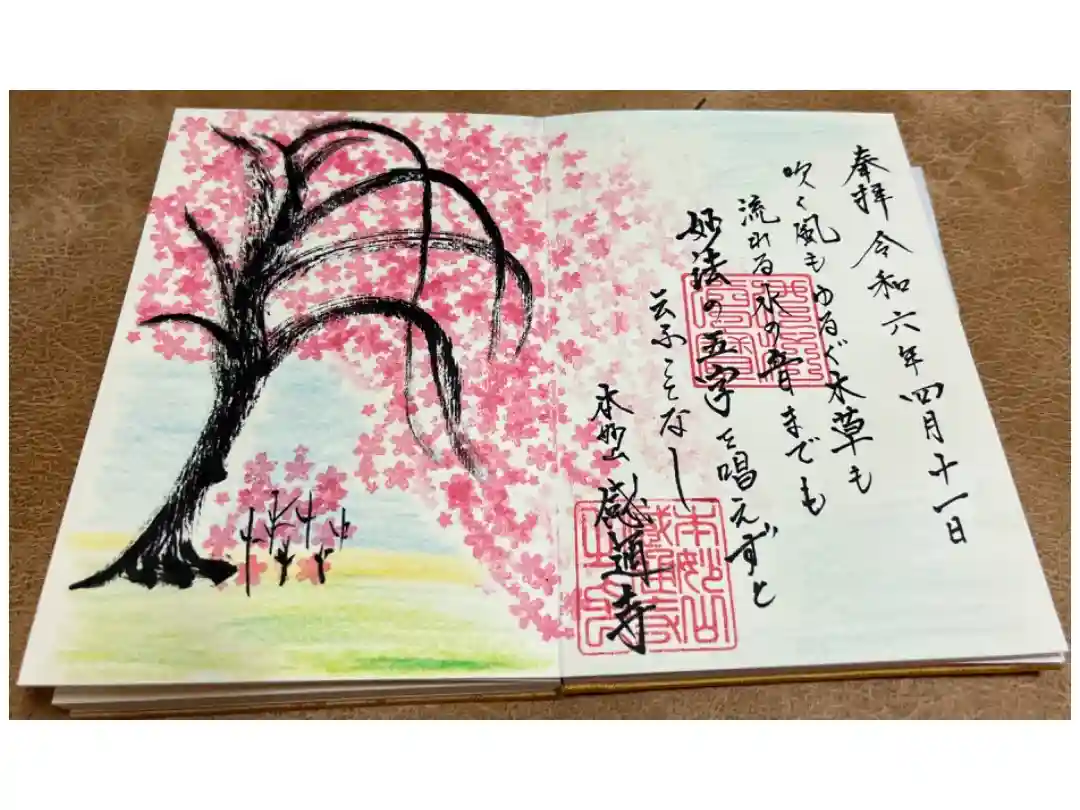 奉拝 令和六年四月十一日
吹く風もゆるぐ木草も
流れる水の音までも
妙法の五字を唱えずと
云ふことなし
本妙山 感通寺
本妙山
感通寺
之印